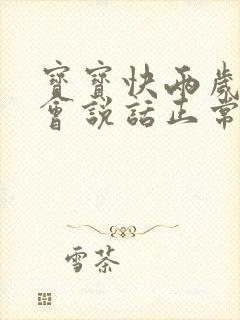 寶寶快兩歲
會説話正常
雪茶